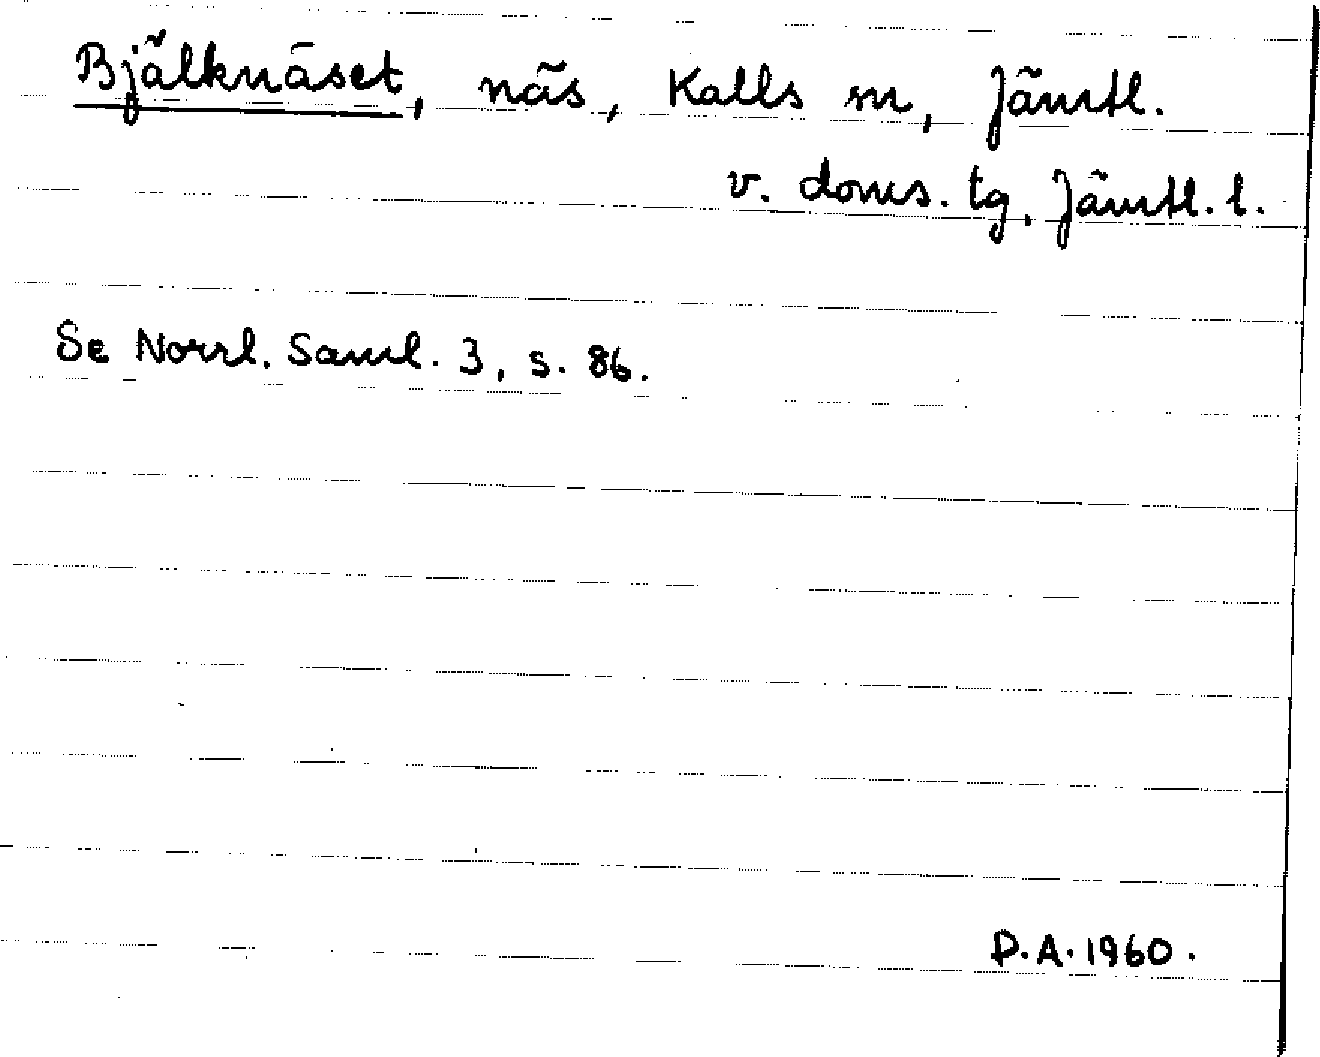 Bjälknäset, näs, Kalls sn, Jämtl.
v. doms. tg, Jämtl. l.
Se Norrl. Saml. 3, s. 86.
D.A. 1960.